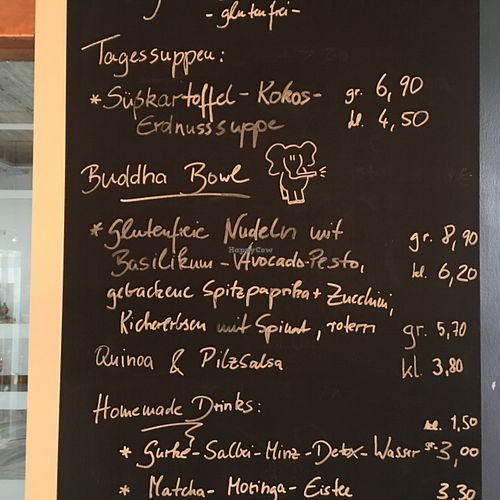 - glutenfrei -
Tagessuppen:
* Süßkartoffel - Kokos- gr. 6,90
Erdnusssuppe kl. 4,50
Buddha Bowl
* glutenfreie Nudeln mit gr. 8,90
Basilikum - Avocado-Pesto, kl. 6,20
gebackene Spitzpaprika + Zucchini,
Kichererbsen mit Spinat, rotem gr. 5,70
Quinoa & Pilzsalsa kl. 3,80
Homemade Drinks:
kl. 1,50
* Gurke - Salbei - Minz - Detox - Wasser gr. 3,00
* Matcha - Moringa - Eistee 3,30
HappyCow